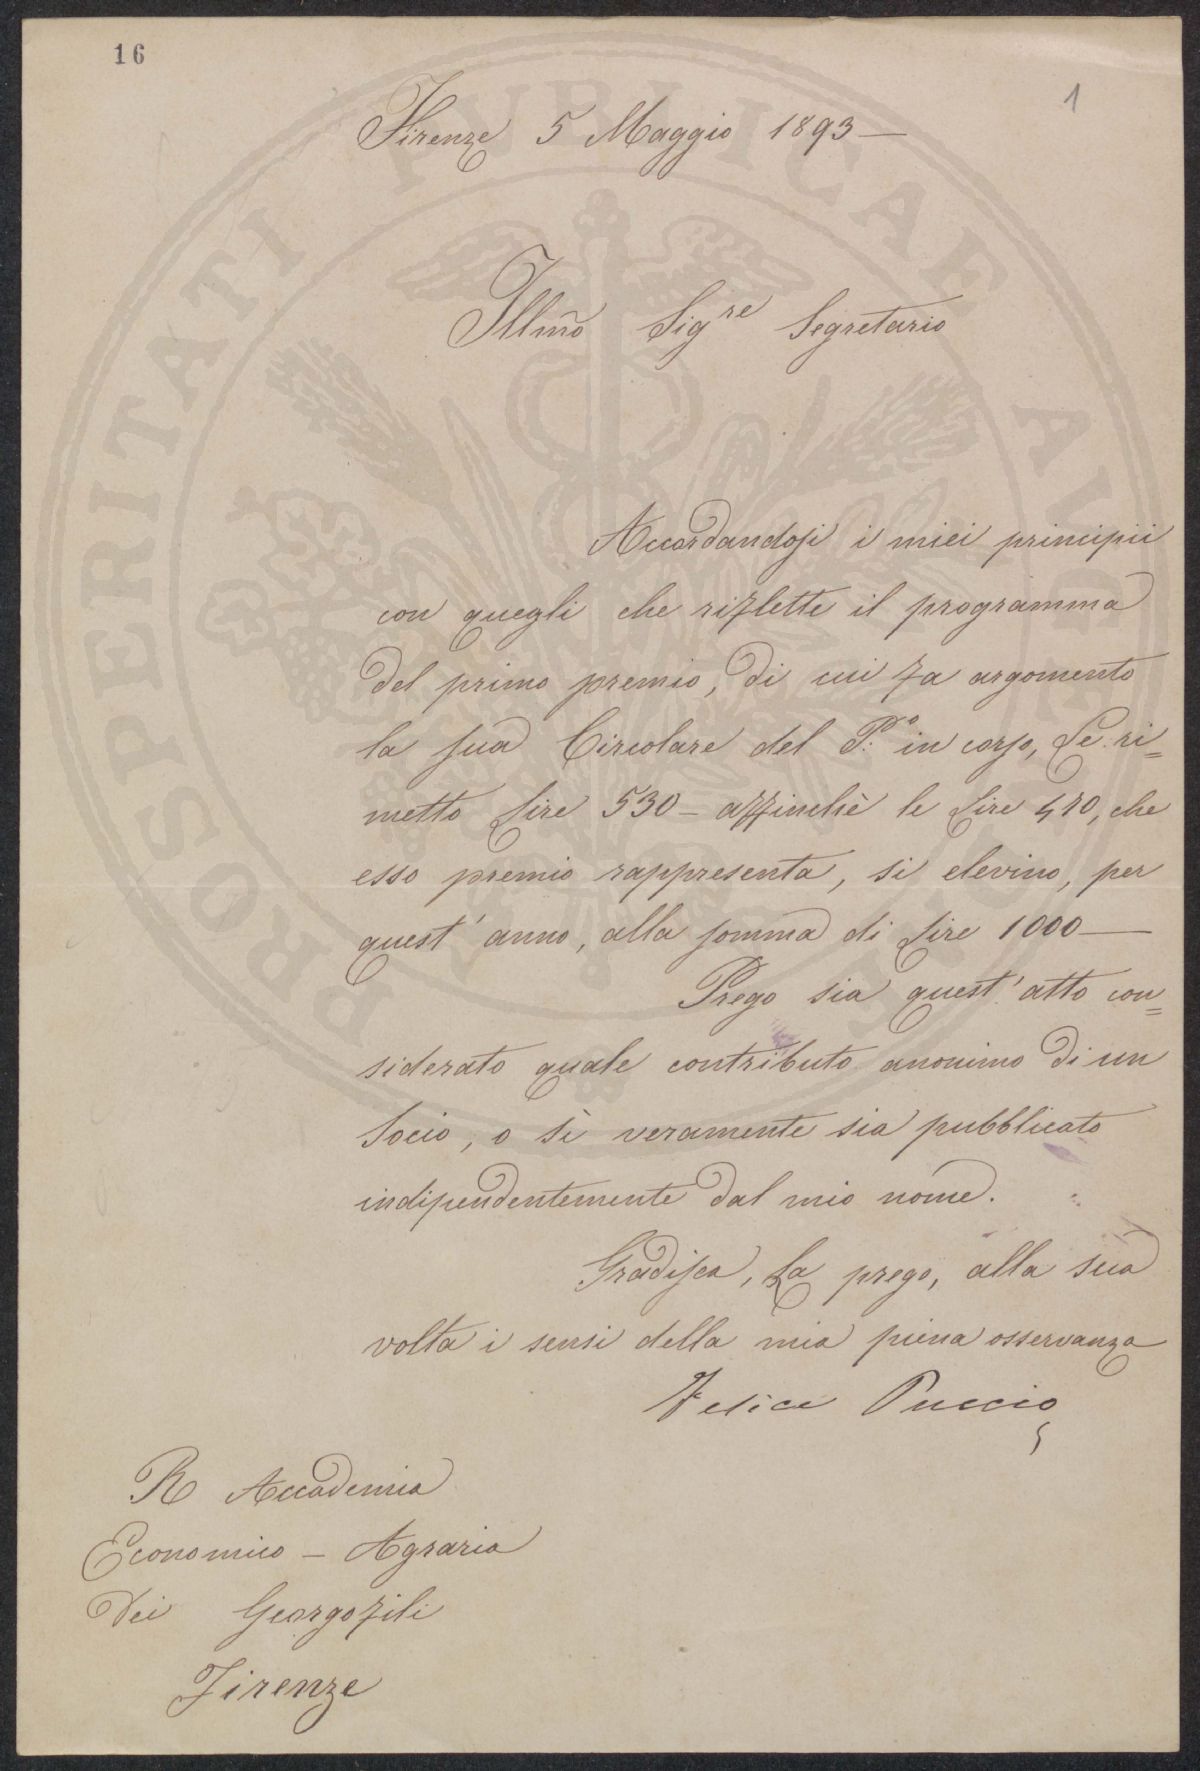 16
1
Firenze 5 Maggio 1893 —
Illmo Sigre Segretario
Accordandosi i miei principii
con quegli che riflette il programma
del primo premio, di cui fa argomento
la sua Circolare del P.º in corso, Le ri=
metto Lire 530 — affinchè le Lire 470, che
esso premio rappresenta, si elevino, per
quest'anno, alla somma di Lire 1000 —
Prego sia quest'atto con=
siderato quale contributo anonimo di un
Socio, o sì veramente sia pubblicato
indipendentemente dal mio nome.
Gradisca, La prego, alla sua
volta i sensi della mia piena osservanza
Felice Puccio
R Accademia
Economico — Agraria
dei Georgofili
Firenze
PROSPERITATI PUBLICAE AUGENDAE